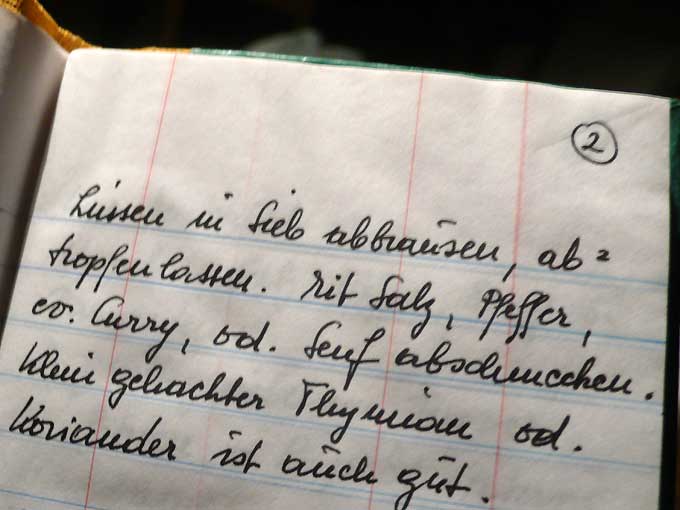 2
Linsen in Sieb abbrausen, ab=
tropfen lassen. Mit Salz, Pfeffer,
ev. Curry, od. Senf abschmecken.
Klein gehackter Thymian od.
Koriander ist auch gut.